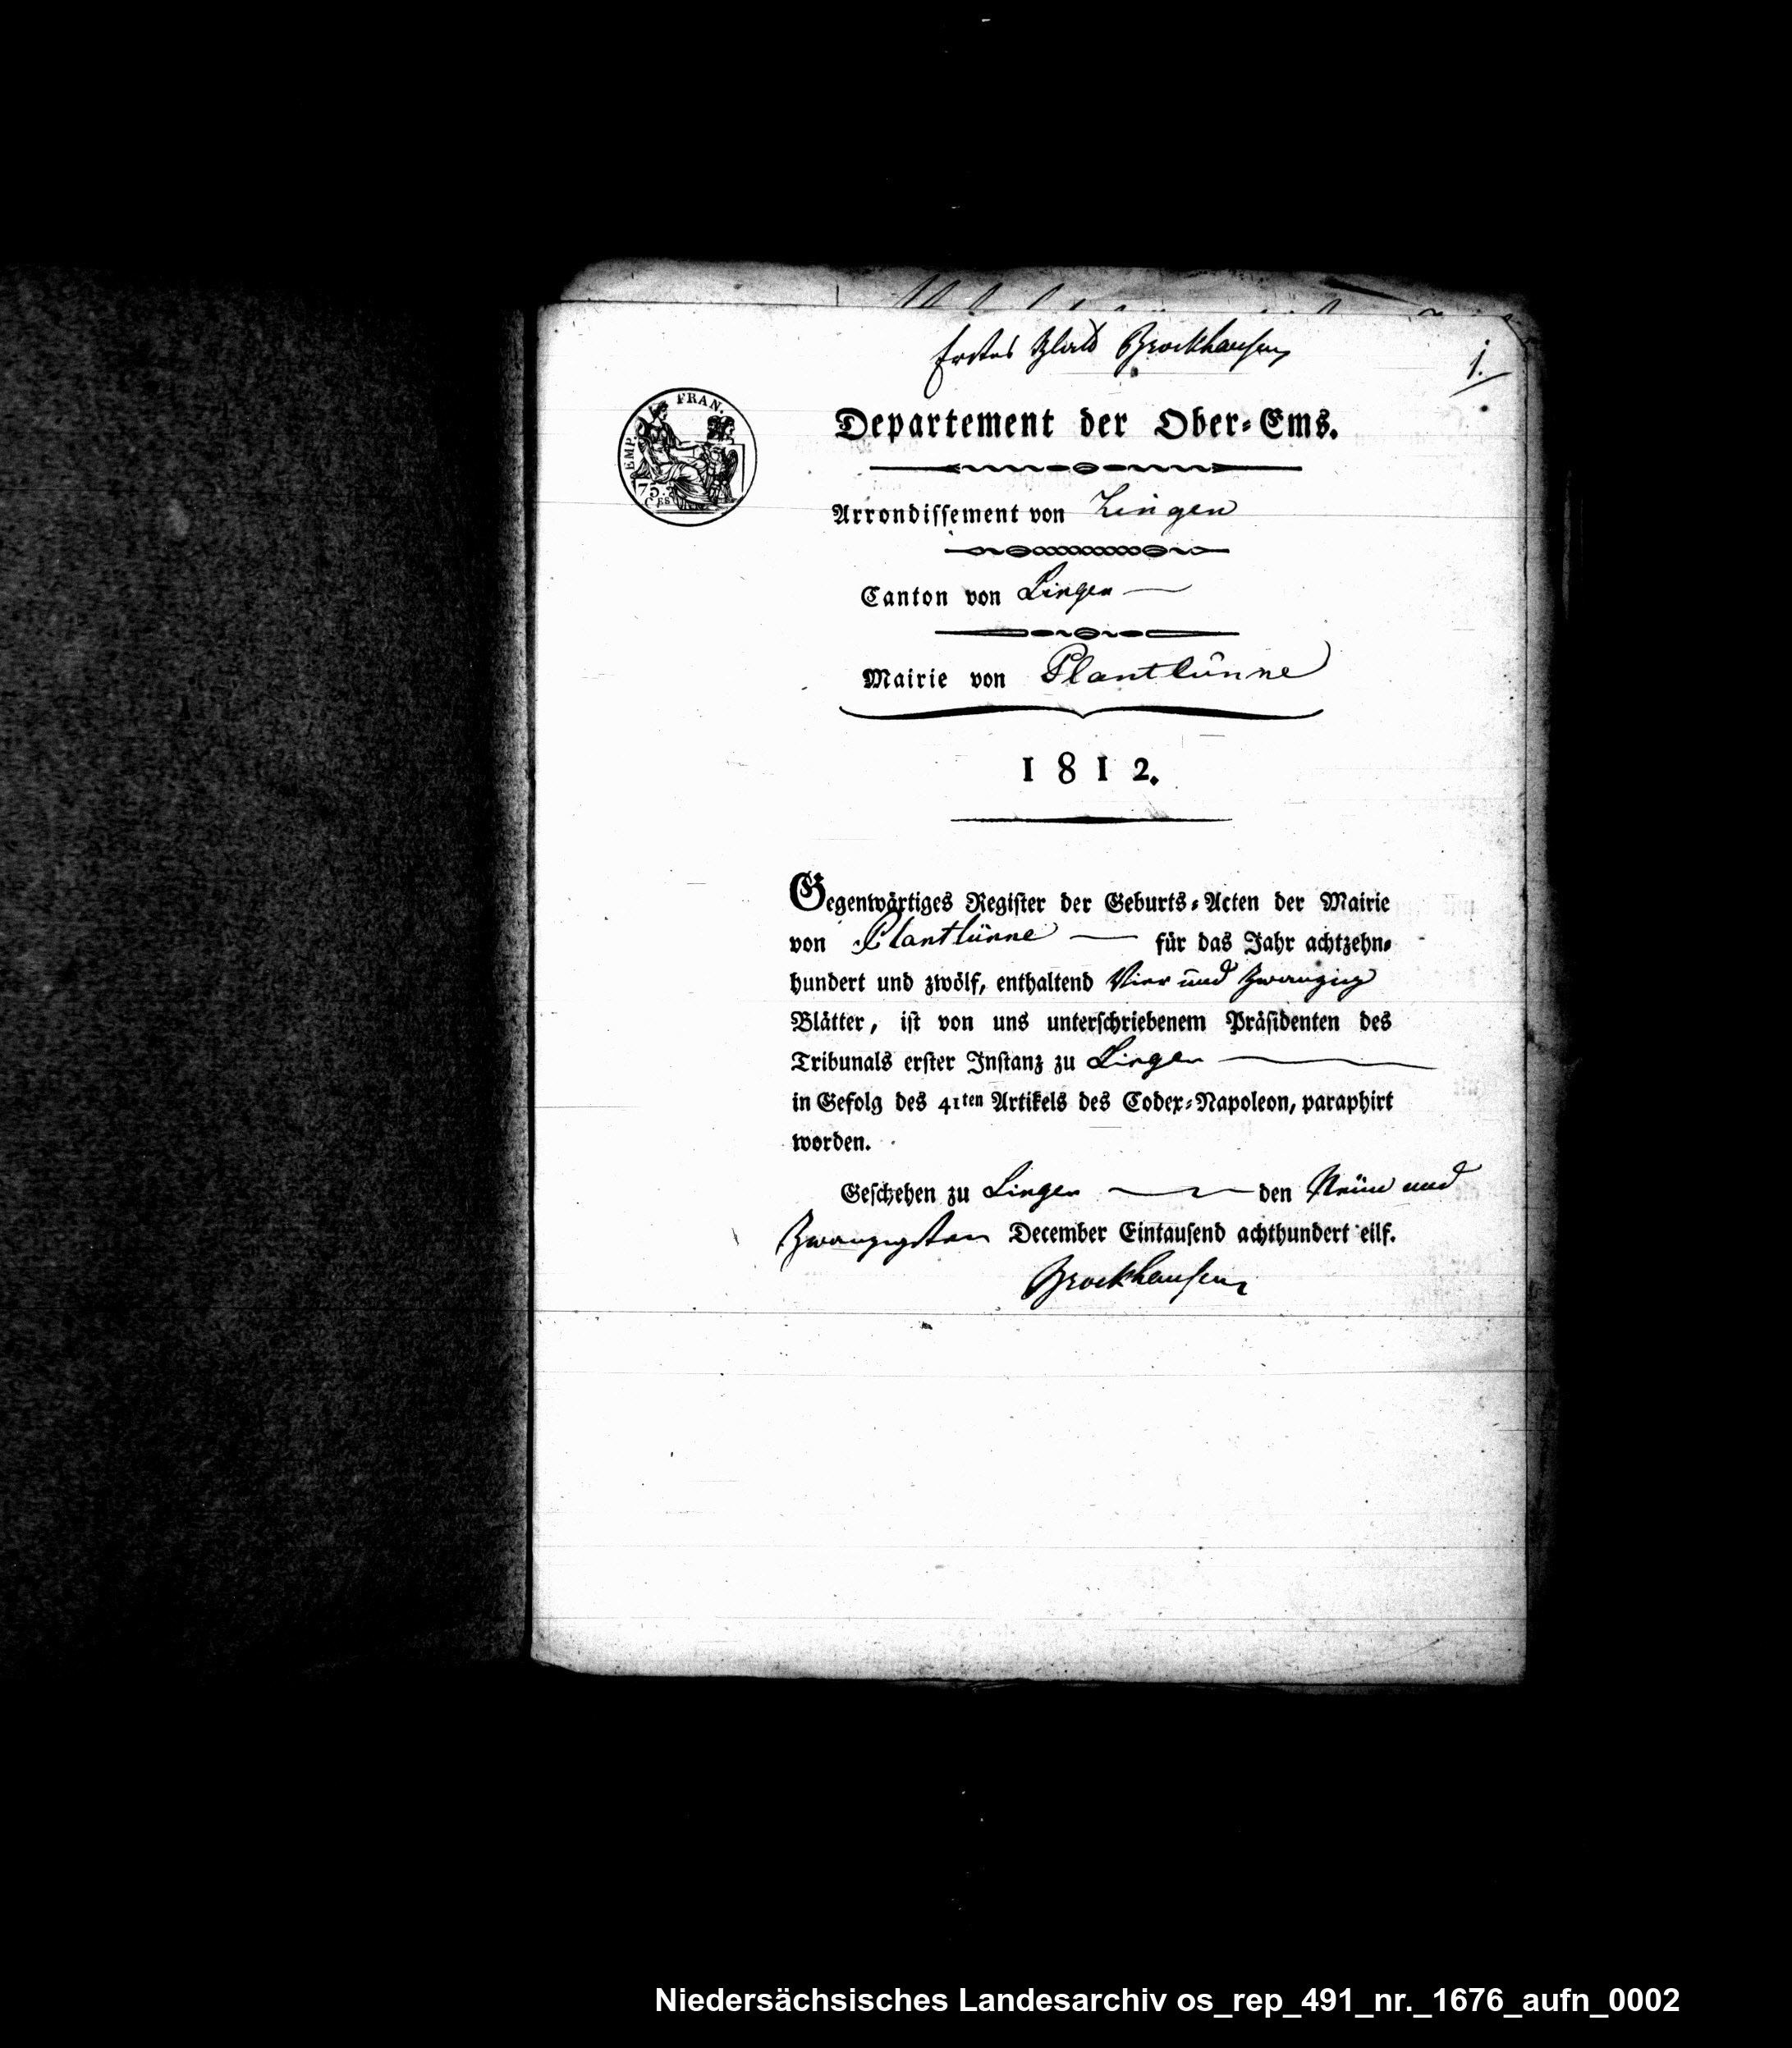 Erstes Blatt Brockhausen
1.
EMP. FRAN.
75.
CES
Departement der Ober-Ems.
Arrondissement von Lingen
Canton von Lingen
Mairie von Plantlünne
1812.
Gegenwärtiges Register der Geburts-Acten der Mairie
von Plantlünne für das Jahr achtzehn-
hundert und zwölf, enthaltend Vier und zwanzig
Blätter, ist von uns unterschriebenem Präsidenten des
Tribunals erster Instanz zu Lingen
in Gefolg des 41ten Artikels des Codex-Napoleon, paraphirt
worden.
Geschehen zu Lingen den Neun und
Zwanzigsten December Eintausend achthundert eilf.
Brockhausen
Niedersächsisches Landesarchiv os_rep_491_nr._1676_aufn_0002